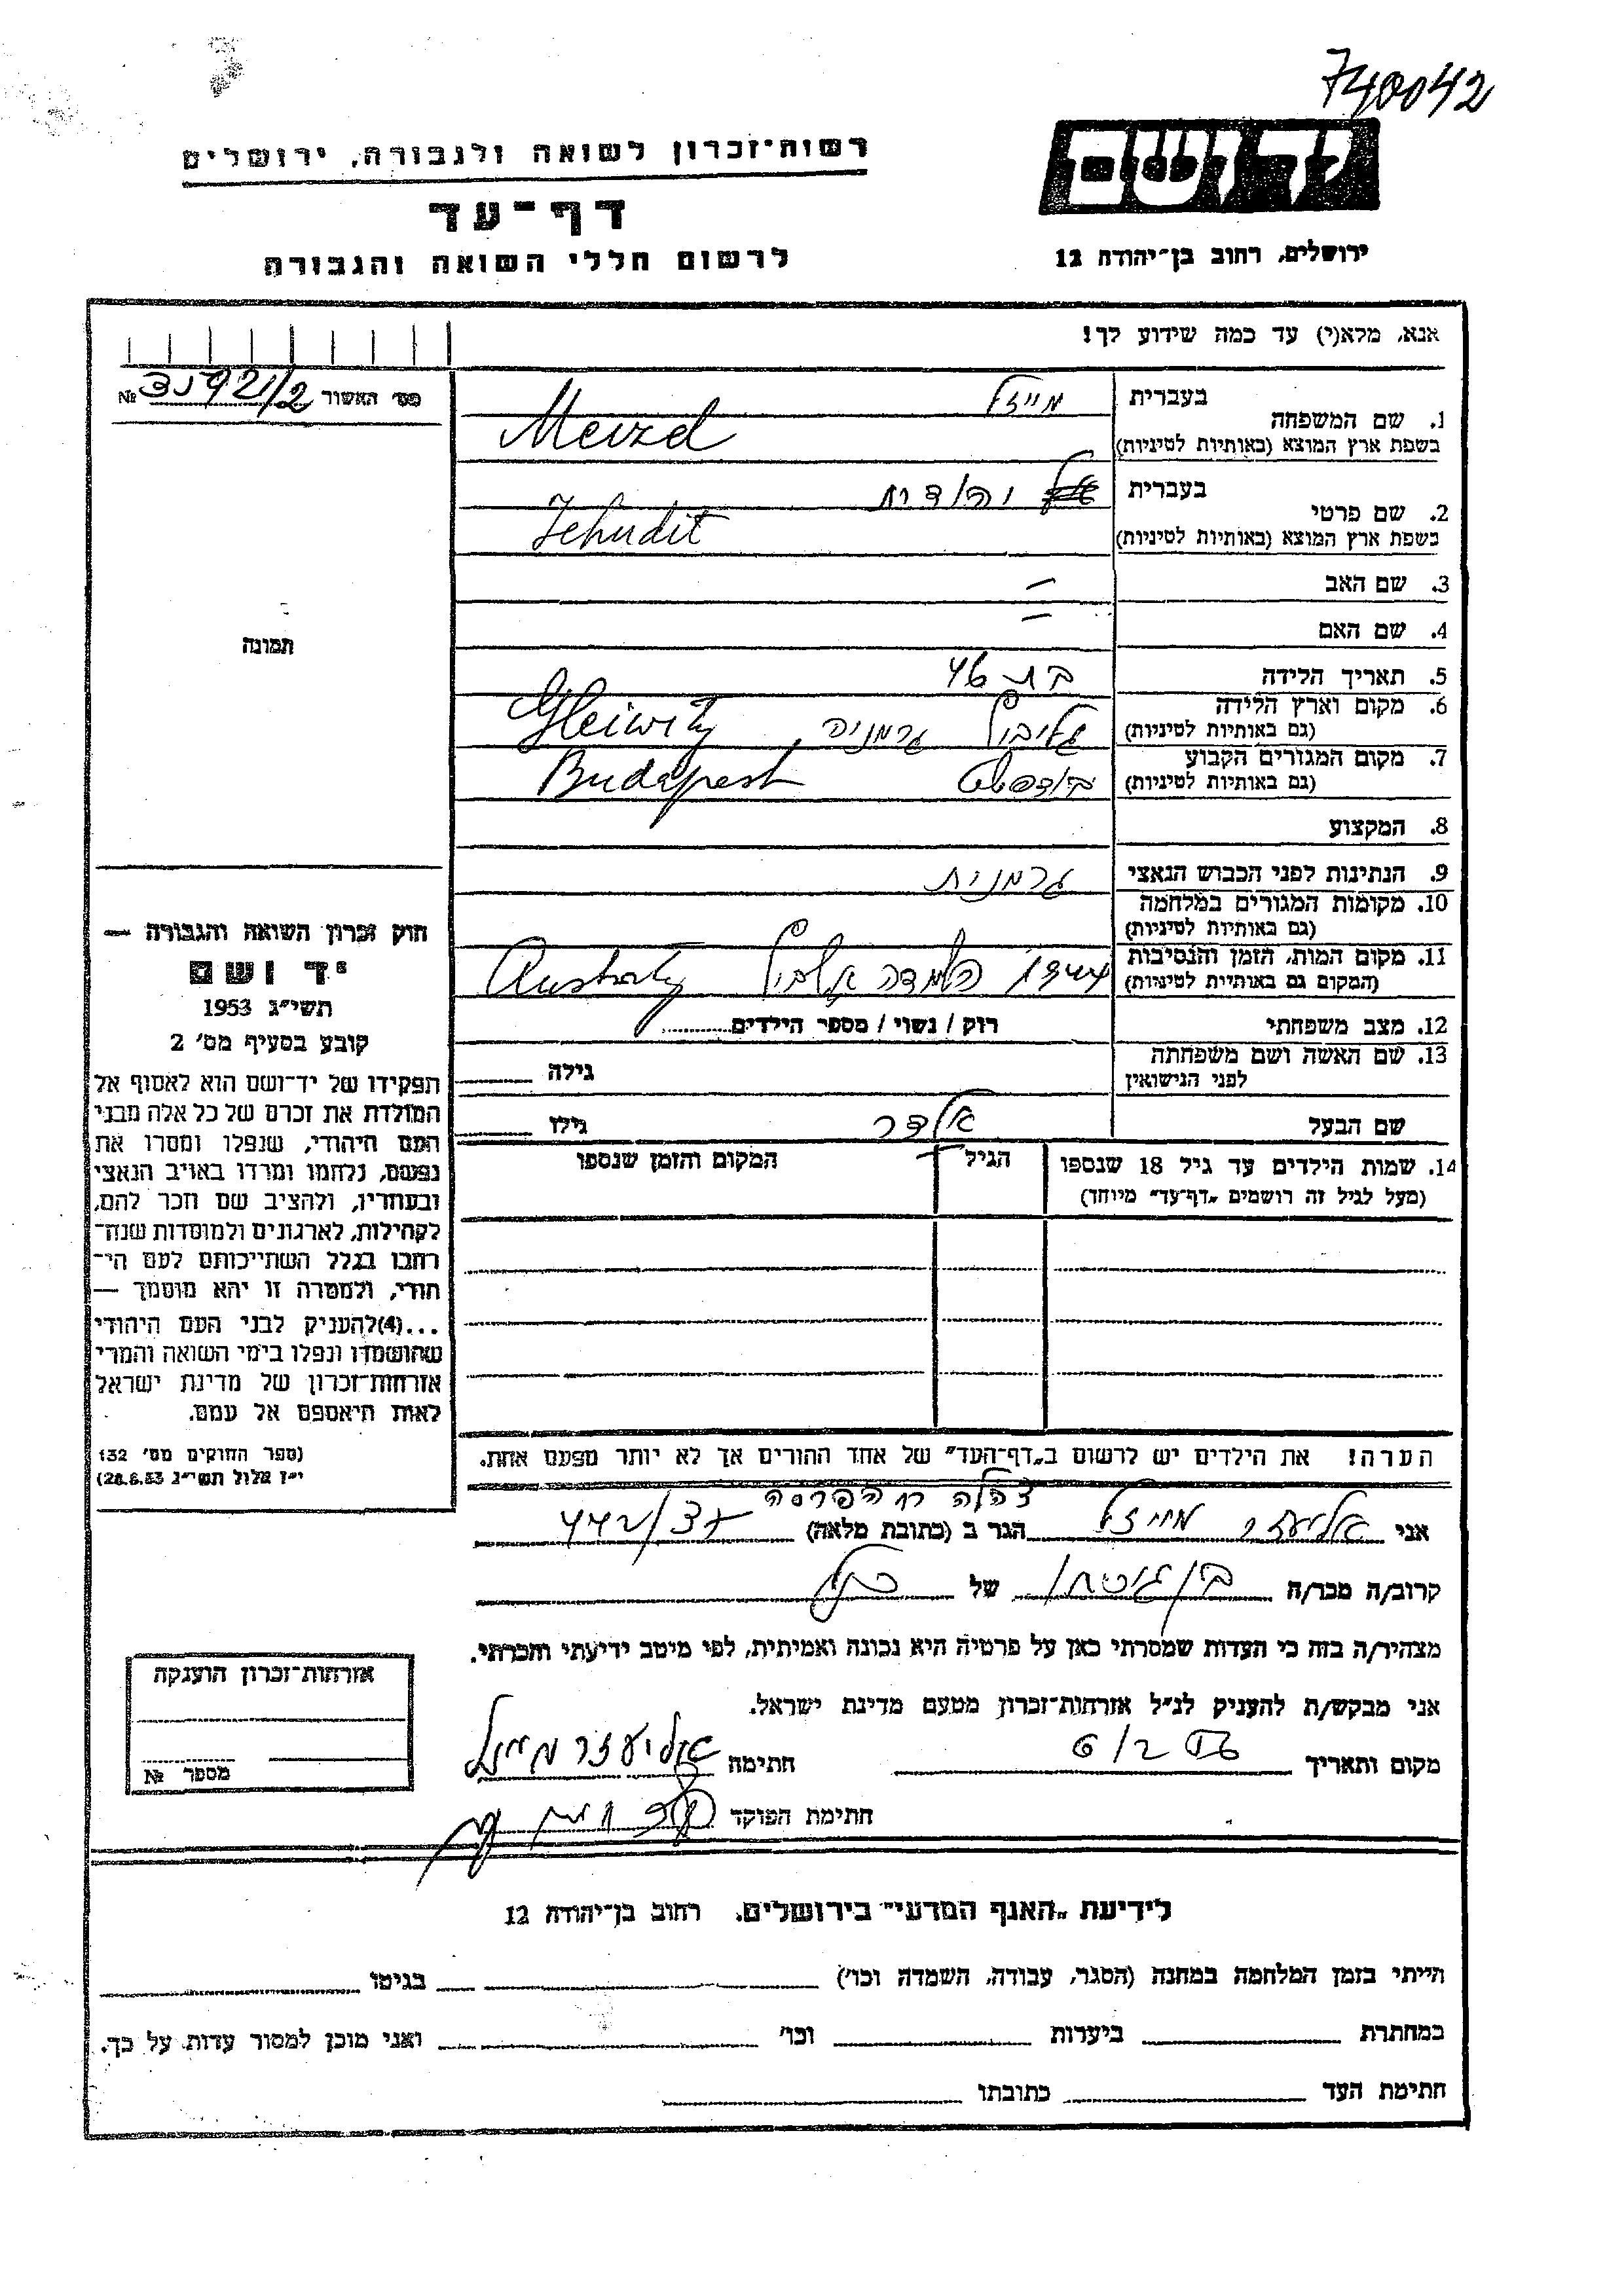 740042
רשות־זכרון לשואה ולגבורה, ירושלים
ידושם
דף־עד
ירושלים, רחוב בן־יהודה 12
לרשום חללי השואה והגבורה
אנא, מלא(י) עד כמה שידוע לך!
מס׳ האשור №
1. שם המשפחה
בעברית מייזל
בשפת ארץ המוצא (באותיות לטיניות) Meizel
2. שם פרטי
בעברית יהודית
בשפת ארץ המוצא (באותיות לטיניות) Jehudit
תמונה
3. שם האב –
4. שם האם –
5. תאריך הלידה בת 46
6. מקום וארץ הלידה
(גם באותיות לטיניות) גליביץ גרמניה, Gleiwitz
7. מקום המגורים הקבוע
(גם באותיות לטיניות) בודפשט Budapest
8. המקצוע
9. הנתינות לפני הכבוש הנאצי גרמנית
10. מקומות המגורים במלחמה
(גם באותיות לטיניות)
11. מקום המות, הזמן והנסיבות
(המקום גם באותיות לטיניות) 1944
12. מצב משפחתי רוק / נשוי / מספר הילדים
13. שם האשה ושם משפחתה
לפני הנישואין גילה
שם הבעל גילו
14. שמות הילדים עד גיל 18 שנספו הגיל המקום והזמן שנספו
(מעל לגיל זה רושמים „דף־עד״ מיוחד)
חוק זכרון השואה והגבורה —
יד ושם
תשי״ג 1953
קובע בסעיף מס׳ 2
תפקידו של יד־ושם הוא לאסוף אל
המולדת את זכרם של כל אלה מבני
העם היהודי, שנפלו ומסרו את
נפשם, נלחמו ומרדו באויב הנאצי
ובעוזריו, ולהציב שם וזכר להם,
לקהילות, לארגונים ולמוסדות שנח־
רבו בגלל השתייכותם לעם הי־
הודי, ולמטרה זו יהא מוסמך —
...(4)להעניק לבני העם היהודי
שהושמדו ונפלו בימי השואה והמרי
אזרחות־זכרון של מדינת ישראל
לאות היאספם אל עמם.
(ספר החוקים מס׳ 132
י״ז אלול תשי״ג 28.8.53)
הערה! את הילדים יש לרשום ב„דף־העד״ של אחד ההורים אך לא יותר מפעם אחת.
צהלה רח הפרסה
אני אליעזר מייזל הגר ב (כתובת מלאה)
קרוב/ה מכר/ה של
מצהיר/ה בזה כי העדות שמסרתי כאן על פרטיה היא נכונה ואמיתית, לפי מיטב ידיעתי והכרתי.
אני מבקש/ת להעניק לנ״ל אזרחות־זכרון מטעם מדינת ישראל.
מקום ותאריך חתימה אליעזר מייזל
חתימת הפוקד
אזרחות־זכרון הוענקה
מספר №
לידיעת „האגף המדעי״ בירושלים, רחוב בן־יהודה 12
הייתי בזמן המלחמה במחנה (הסגר, עבודה, השמדה וכו׳) בגיטו
במחתרת ביערות וכו׳ ואני מוכן למסור עדות על כך.
חתימת העד כתובתו